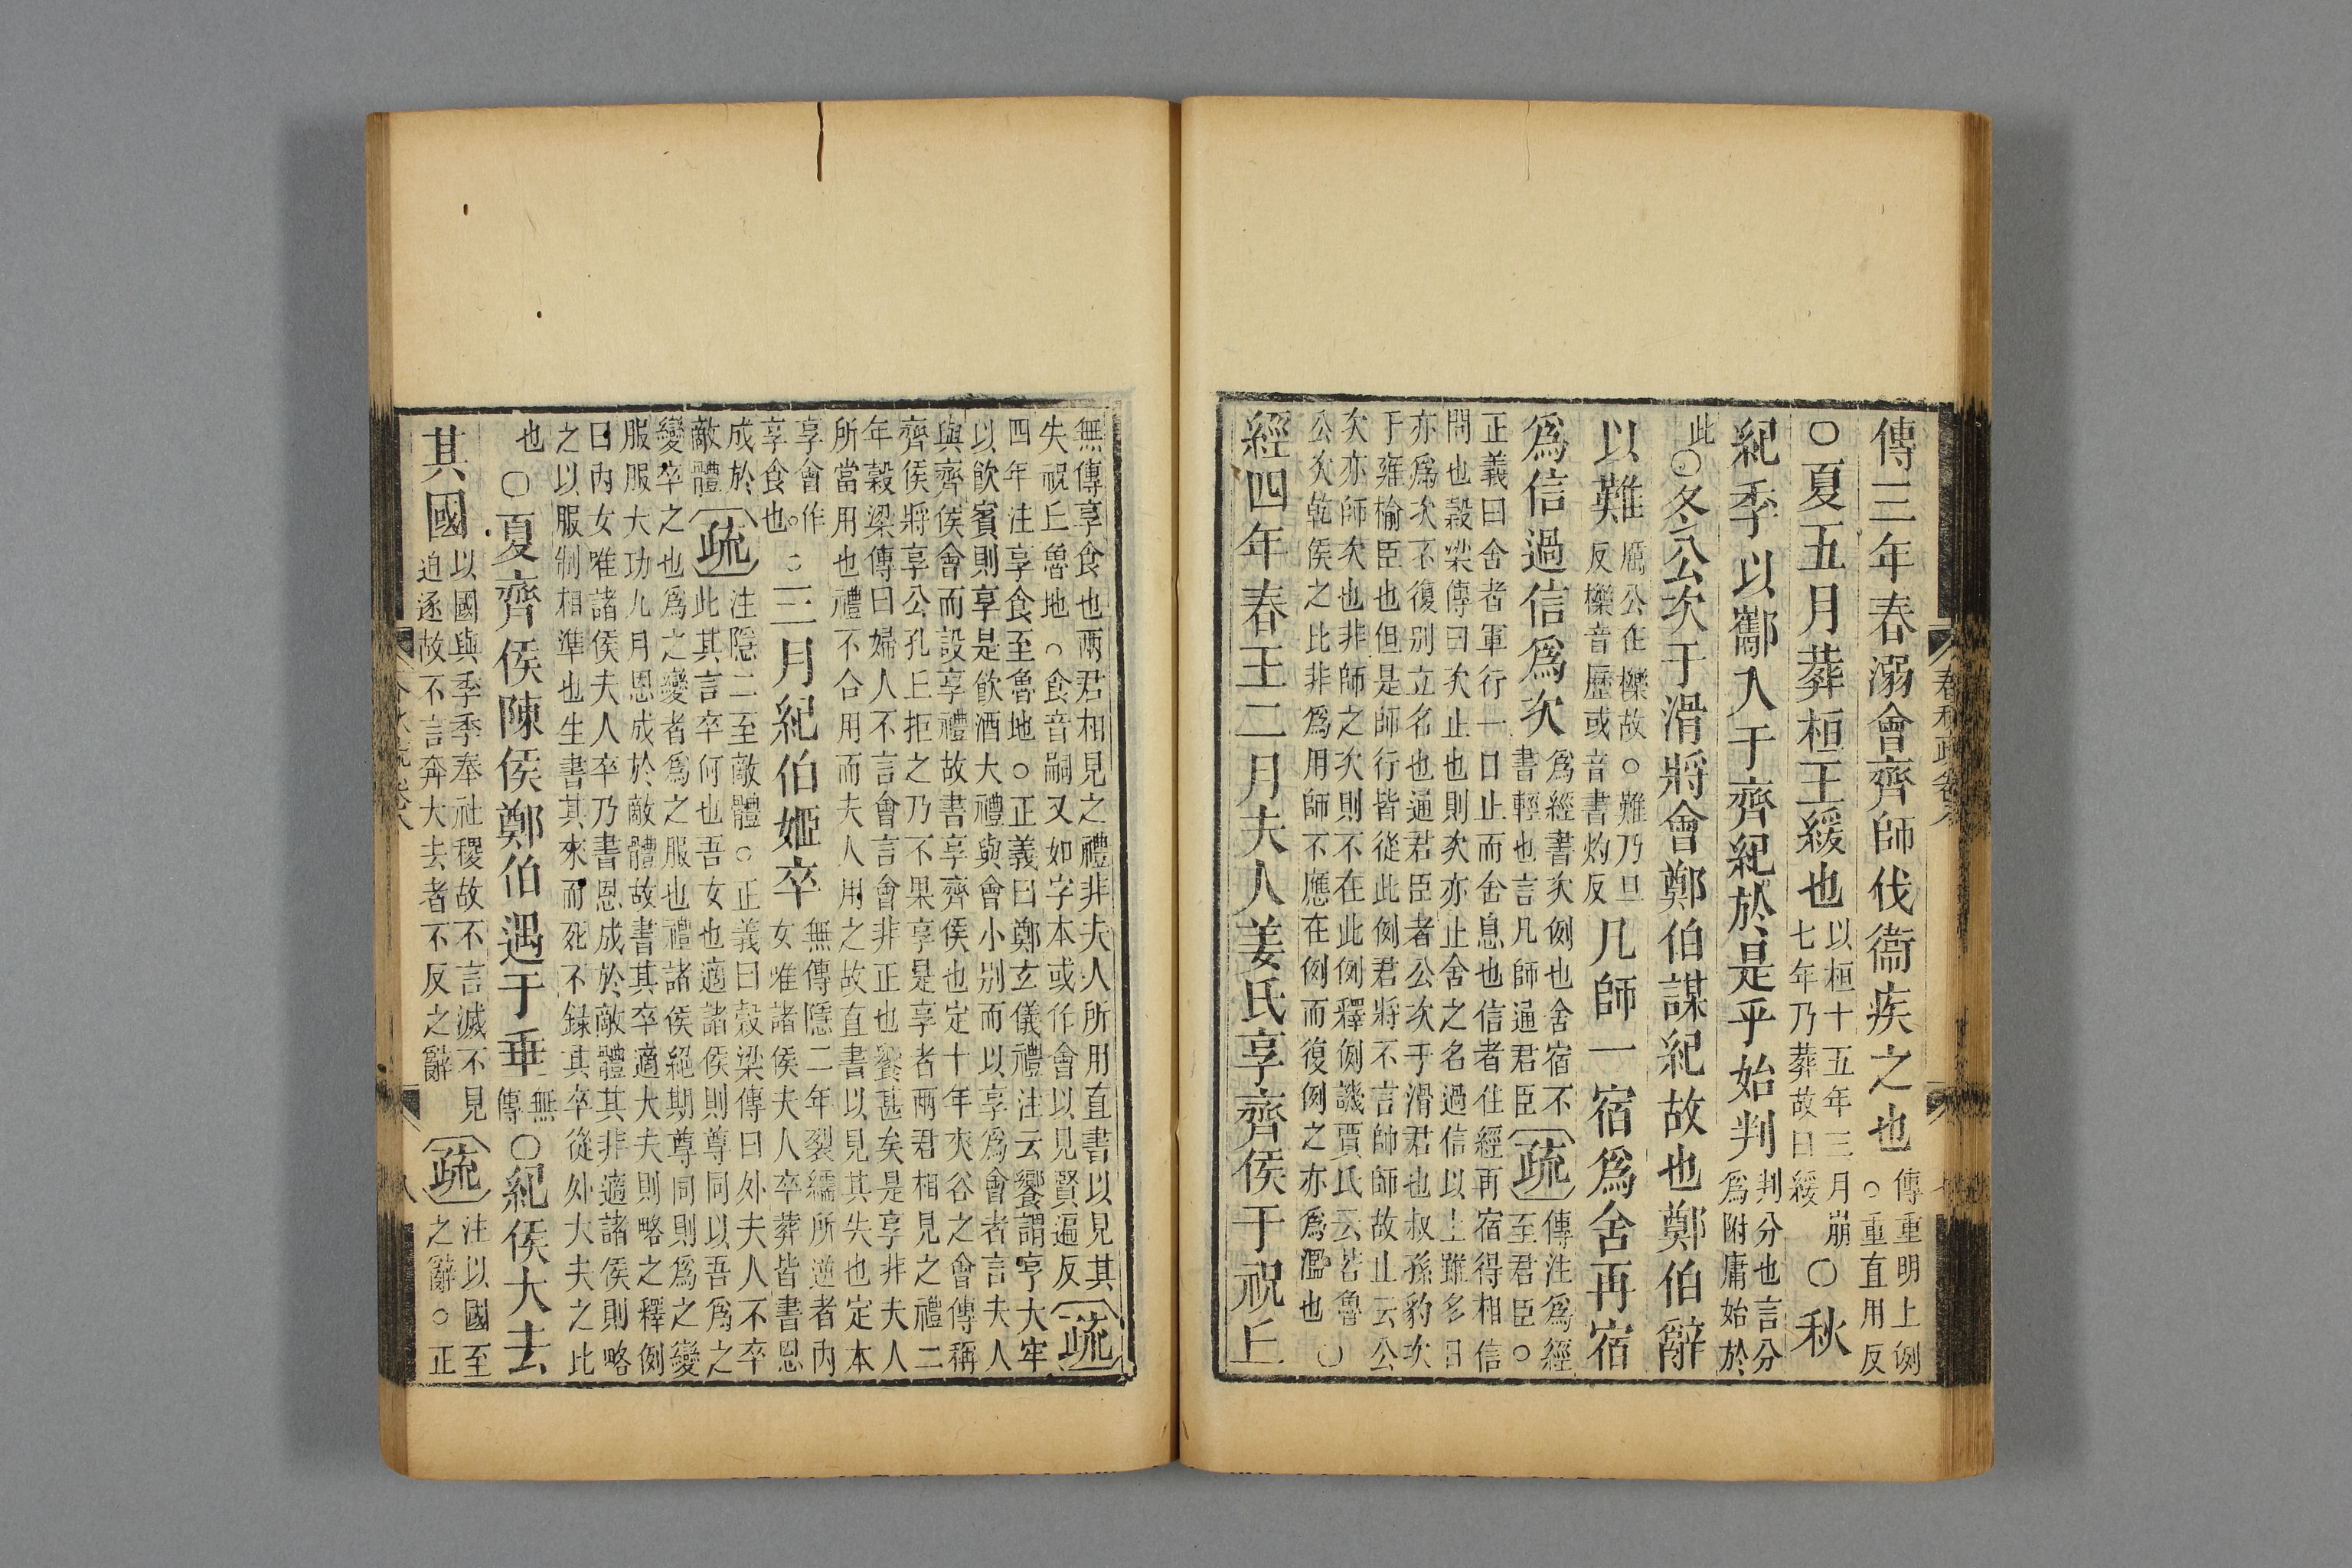 春秋疏卷八
傳三年春溺會齊師伐衞疾之也傳重明上例
○重直用反
○夏五月葬桓王緩也以桓十五年三月崩
七年乃葬故曰緩○秋
紀季以酅入于齊紀於是乎始判判分也言分
爲附庸始於
此○冬公次于滑將會鄭伯謀紀故也鄭伯辭
以難厲公在櫟故○難乃旦
反櫟音歷或音書灼反凡師一宿爲舍再宿
爲信過信爲次爲經書次例也舍宿不
書輕也言凡師通君臣疏傳注爲經
至君臣○
正義曰舍者軍行一日止而舍息也信者住經再宿得相信
問也穀梁傳曰次止也則次亦止舍之名過信以上雖多日
亦爲次不復別立名也通君臣者公次于滑君也叔孫豹次
于雍榆臣也但是師行皆從此例君將不言帥師故止云公
次亦師次也非師之次則不在此例釋例譏賈氏云若魯
公次乾侯之比非爲用師不應在例而復例之亦爲濫也○
經四年春王二月夫人姜氏享齊侯于祝丘
無傳享食也兩君相見之禮非夫人所用直書以見其
失祝丘魯地○食音嗣又如字本或作會以見賢遍反疏
四年注享食至魯地○正義曰鄭玄儀禮注云饗謂亨大牢
以飲賓則享是飲酒大禮與會小別而以享爲會者言夫人
與齊侯會而設享禮故書享齊侯也定十年夾谷之會傳稱
齊侯將享公孔丘拒之乃不果享是享者兩君相見之禮二
年穀梁傳曰婦人不言會言會非正也饗甚矣是享非夫人
所當用也禮不合用而夫人用之故直書以見其失也定本
享會作
享食也。○三月紀伯姬卒無傳隱二年裂繻所逆者內
女唯諸侯夫人卒葬皆書恩
成於
敵體疏注隱二至敵體○正義曰穀梁傳曰外夫人不卒
此其言卒何也吾女也適諸侯則尊同以吾爲之
變卒之也爲之變者爲之服也禮諸侯絕期尊同則爲之變
服服大功九月恩成於敵體故書其卒適大夫則略之釋例
曰內女唯諸侯夫人卒乃書恩成於敵體其非適諸侯則略
之以服制相準也生書其來而死不錄其卒從外大夫之比
也○夏齊侯陳侯鄭伯遇于垂無
傳○紀侯大去
其國以國與季季奉社稷故不言滅不見
迫逐故不言奔大去者不反之辭疏注以國至
之辭○正
八